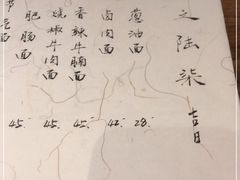 之陆柒 吉日
葱油面 28.
卤肉面 42.
香辣牛腩面 45.
烧椒牛肉面 45.
肥肠面 45.